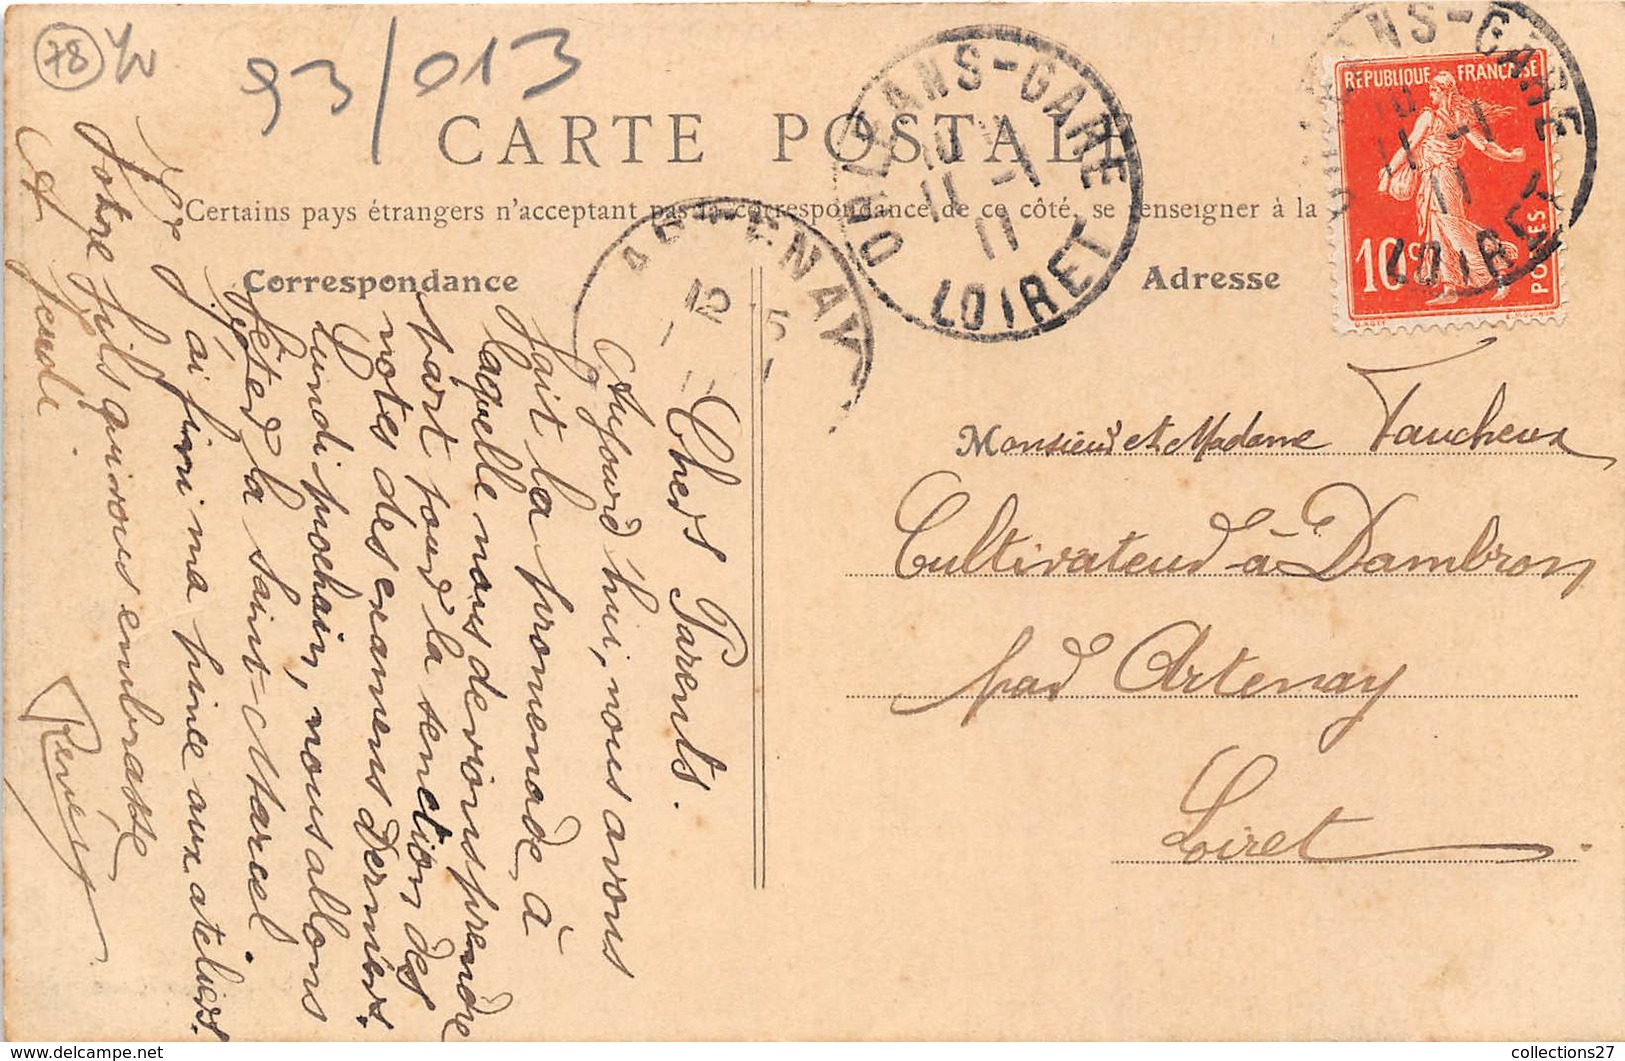 78
93/013
CARTE POSTALE
Certains pays étrangers n'acceptant pas la correspondance de ce côté, se renseigner à la
Correspondance
Adresse
ORLEANS-GARE
10
11 -1
11
LOIRET
ORLEANS-GARE
10
11 -1
11
LOIRET
ARTENAY
12
REPUBLIQUE FRANÇAISE
10c
POSTES
Chers Parents.
Aujourd'hui, nous avons
fait la promenade à
laquelle nous devions prendre
part pour la remise des
notes des examens derniers.
lundi prochain, nous allons
fêter la Saint-Marcel.
J'ai fini ma pince aux ateliers.
Votre fils qui vous embrasse
René
Monsieur et Madame Faucheux
Cultivateur à Dambron
par Artenay
Loiret
collections27